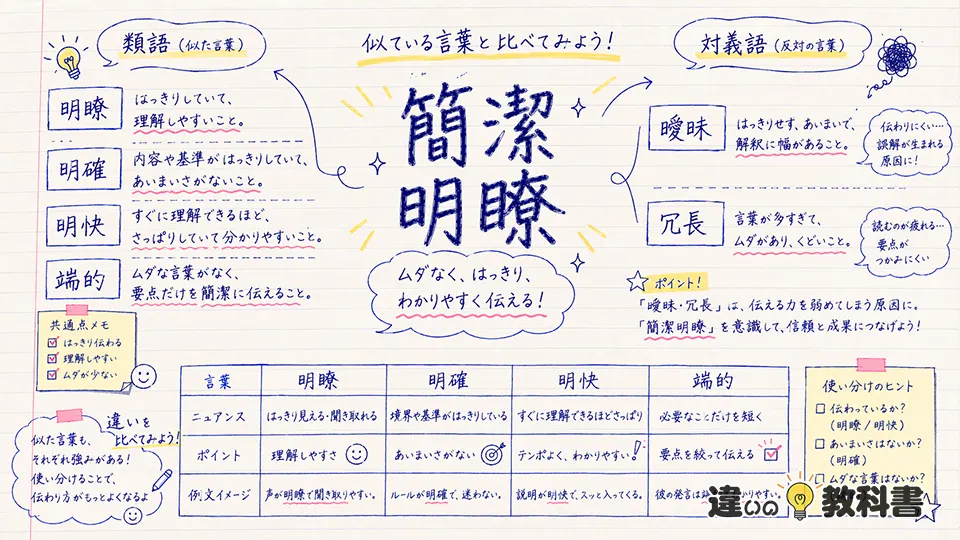 類語（似た言葉）
似ている言葉と比べてみよう！
対義語（反対の言葉）
簡潔
明瞭
ムダなく、はっきり、
わかりやすく伝える！
明瞭
はっきりしていて、
理解しやすいこと。
明確
内容や基準がはっきりしていて、
あいまいさがないこと。
明快
すぐに理解できるほど、
さっぱりしていて分かりやすいこと。
端的
ムダな言葉がなく、
要点だけを簡潔に伝えること。
曖昧
はっきりせず、あいまいで、
解釈に幅があること。
伝わりにくい…
誤解が生まれる
原因に！
冗長
言葉が多すぎて、
ムダがあり、くどいこと。
読むのが疲れる…
要点が
つかみにくい
ポイント！
「曖昧・冗長」は、伝える力を弱めてしまう原因に。
「簡潔明瞭」を意識して、信頼と成果につなげよう！
共通点メモ
はっきり伝わる
理解しやすい
ムダが少ない
違いを
比べてみよう！
似た言葉も、
それぞれ強みがある！
使い分けることで、
伝わり方がもっとよくなるよ
言葉 明瞭 明確 明快 端的
ニュアンス はっきり見える・聞き取れる 境界や基準がはっきりしている すぐに理解できるほどさっぱり 必要なことだけを短く
ポイント 理解しやすさ あいまいさがない テンポよく、わかりやすい！ 要点を絞って伝える
例文イメージ 声が明瞭で聞き取りやすい。 ルールが明確で、迷わない。 説明が明快で、スッと入ってくる。 彼の発言は かりやすい。
使い分けのヒント
伝わっているか？
（明瞭/明快）
あいまいさはないか？
（明確）
ムダな言葉はないか？
違いの教科書